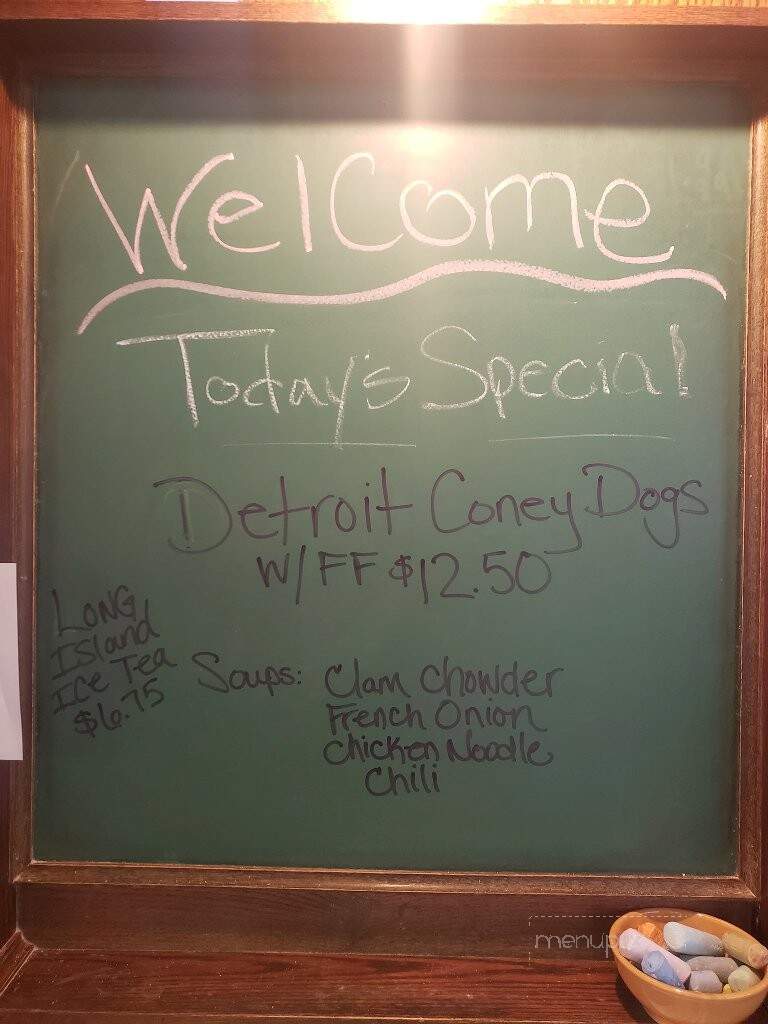 Welcome
Today's Special
Detroit Coney Dogs
W/ FF $12.50
Long
Island
Ice Tea
$6.75
Soups: Clam Chowder
French Onion
Chicken Noodle
Chili